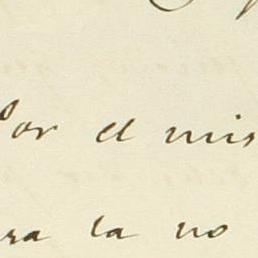 Por el mis
ra la no